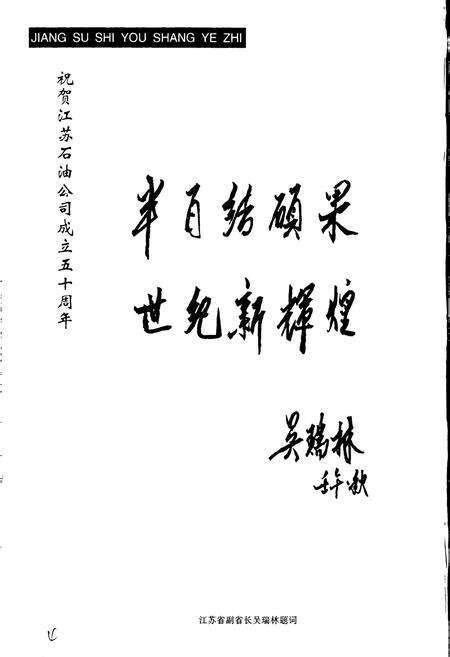 JIANG SU SHI YOU SHANG YE ZHI
祝贺江苏石油公司成立五十周年
半百结硕果
世纪新辉煌
吴瑞林
壬午秋
江苏省副省长吴瑞林题词